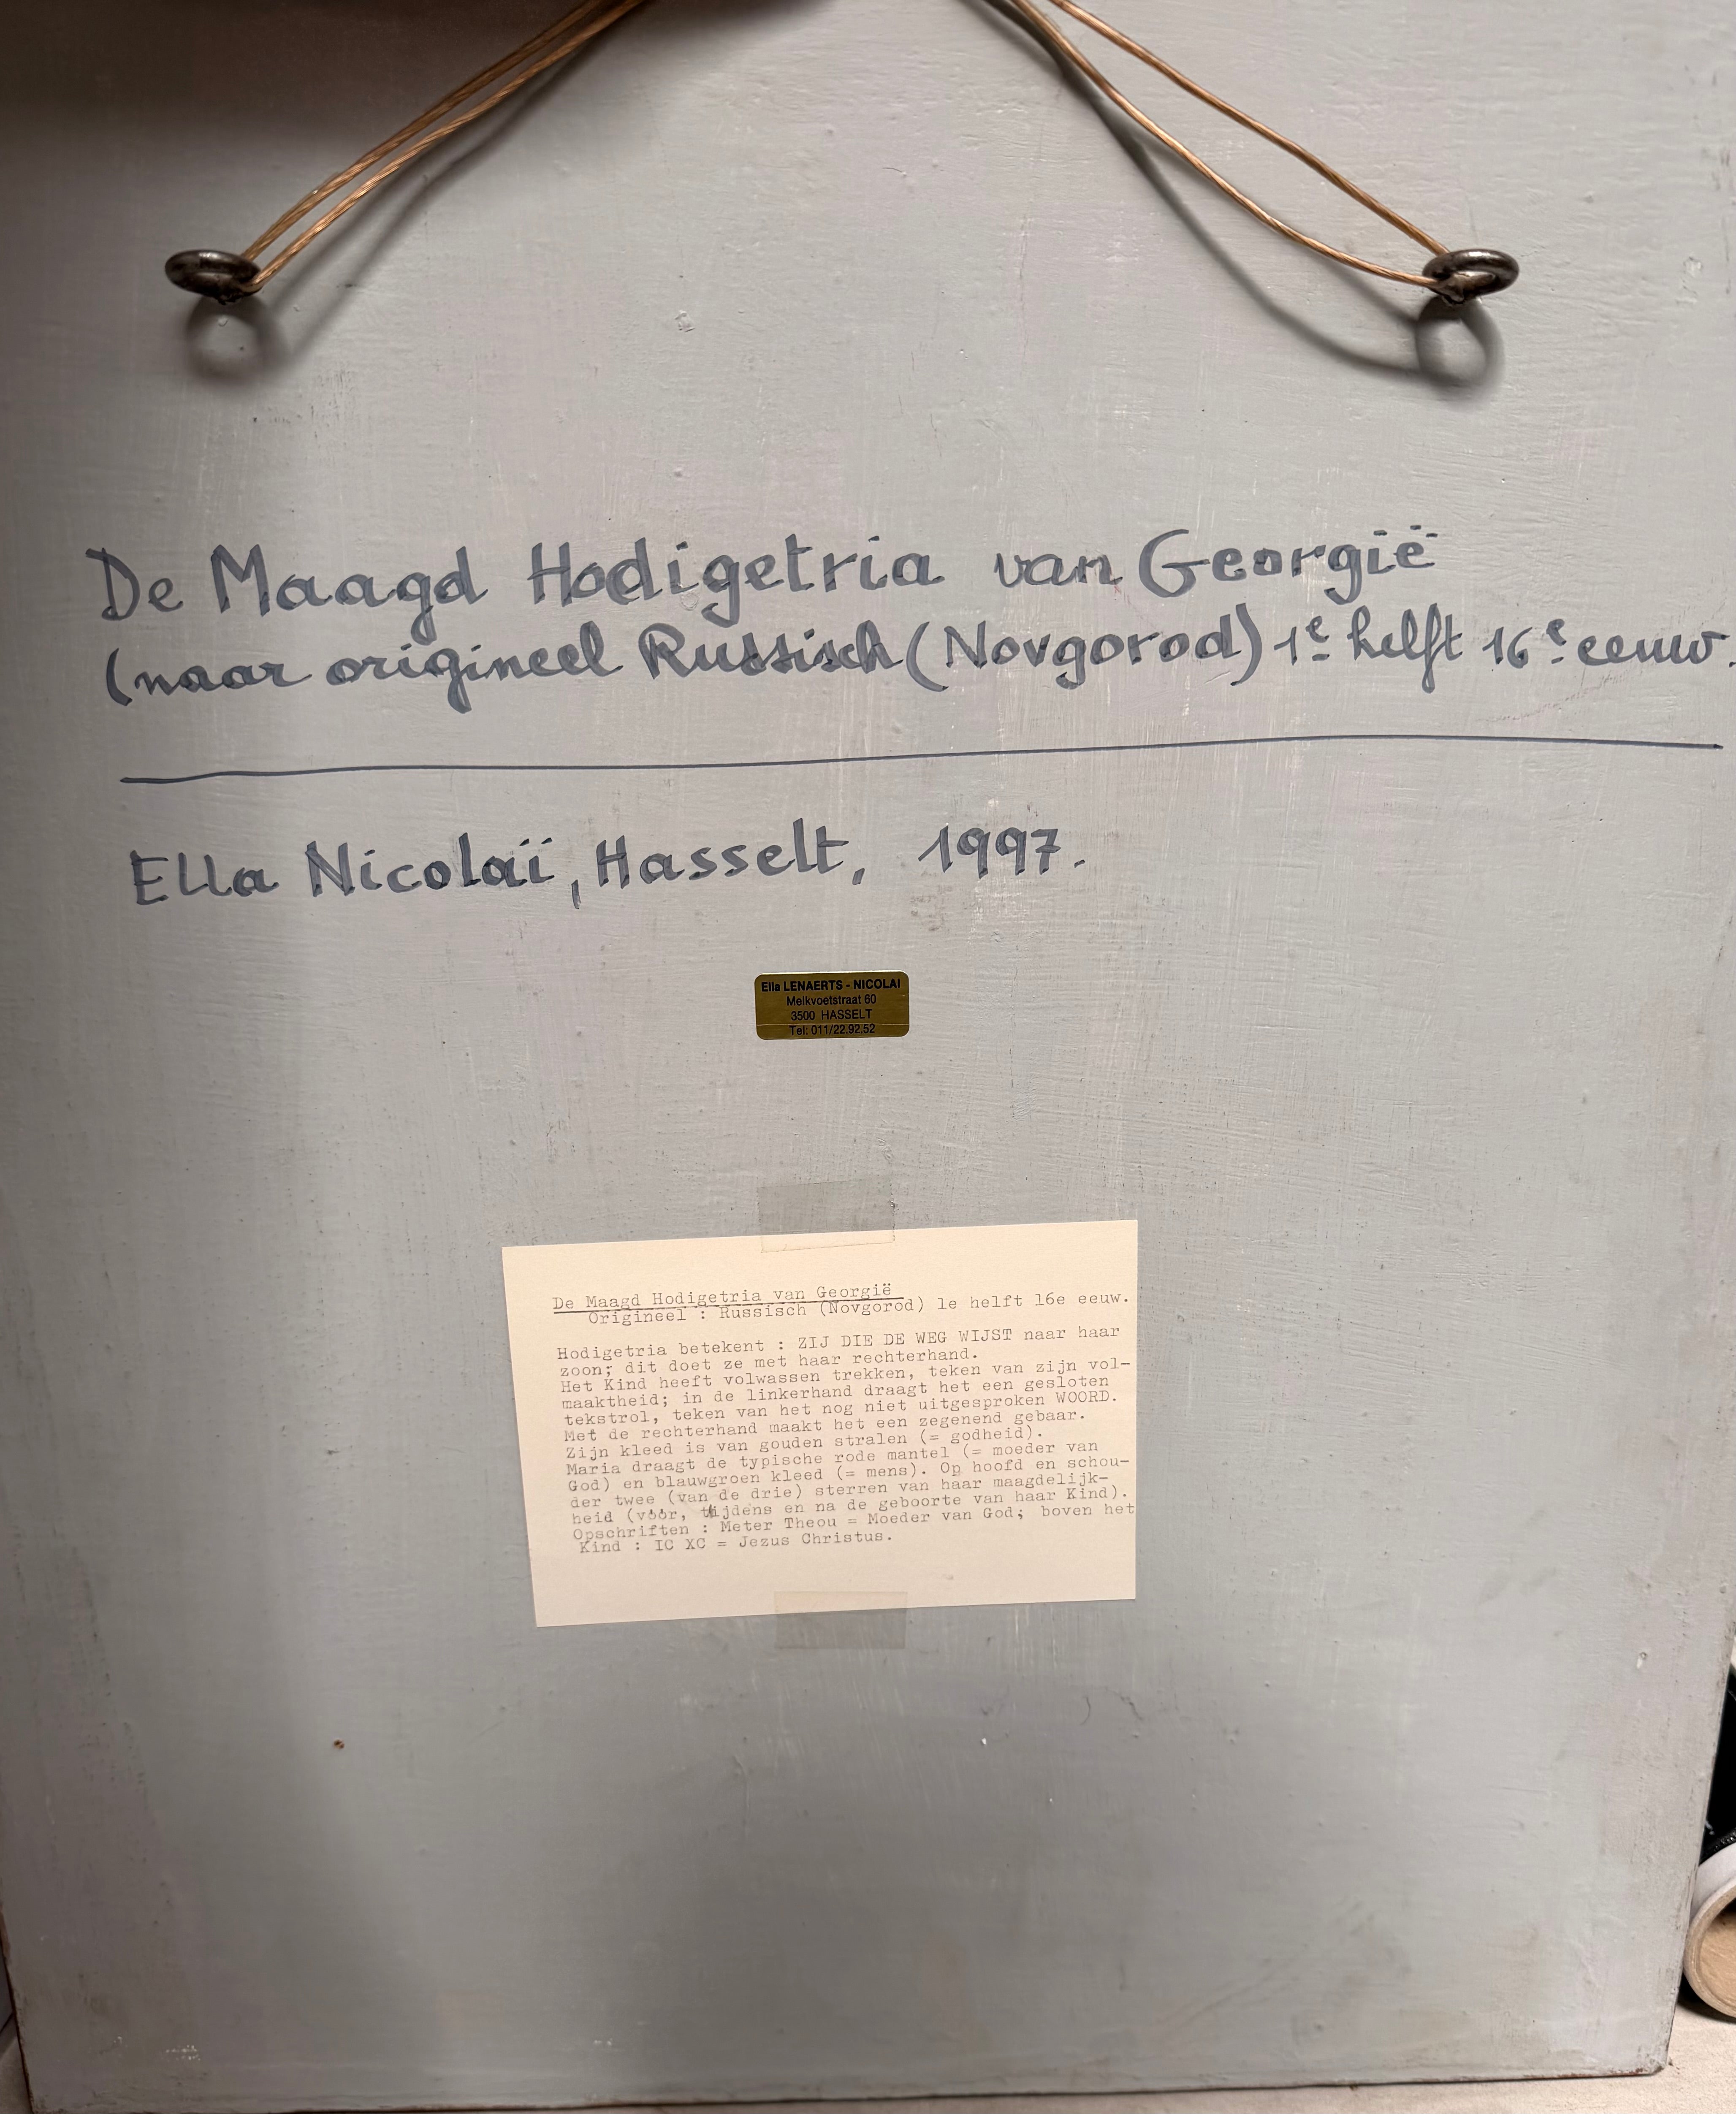 De Maagd Hodigetria van Georgië
(naar origineel Russisch (Novgorod) 1e helft 16e eeuw.
Ella Nicolaï, Hasselt, 1997.
Ella LENAERTS - NICOLAI
Melkvoetstraat 60
3500 HASSELT
Tel: 011/22.92.52
De Maagd Hodigetria van Georgië
Origineel : Russisch (Novgorod) 1e helft 16e eeuw.
Hodigetria betekent : ZIJ DIE DE WEG WIJST naar haar
zoon; dit doet ze met haar rechterhand.
Het Kind heeft volwassen trekken, teken van zijn vol-
maaktheid; in de linkerhand draagt het een gesloten
tekstrol, teken van het nog niet uitgesproken WOORD.
Met de rechterhand maakt het een zegenend gebaar.
Zijn kleed is van gouden stralen (= godheid).
Maria draagt de typische rode mantel (= moeder van
God) en blauwgroen kleed (= mens). Op hoofd en schou-
der twee (van de drie) sterren van haar maagdelijk-
heid (vóór, tijdens en na de geboorte van haar Kind).
Opschriften : Meter Theou = Moeder van God; boven het
Kind : IC XC = Jezus Christus.